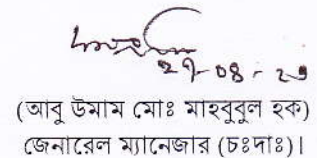 ২৭-০৪-২৩
(আবু উমাম মোঃ মাহবুবুল হক)
জেনারেল ম্যানেজার (চঃদাঃ)।